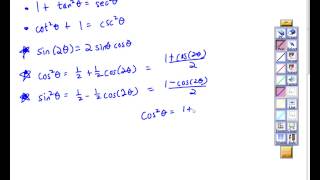 • 1 + tan²θ = sec²θ
• cot²θ + 1 = csc²θ
sin(2θ) = 2 sinθ cosθ
cos²θ = 1/2 + 1/2 cos(2θ) = (1+cos(2θ))/2
sin²θ = 1/2 - 1/2 cos(2θ) = (1-cos(2θ))/2
cos²θ = 1+